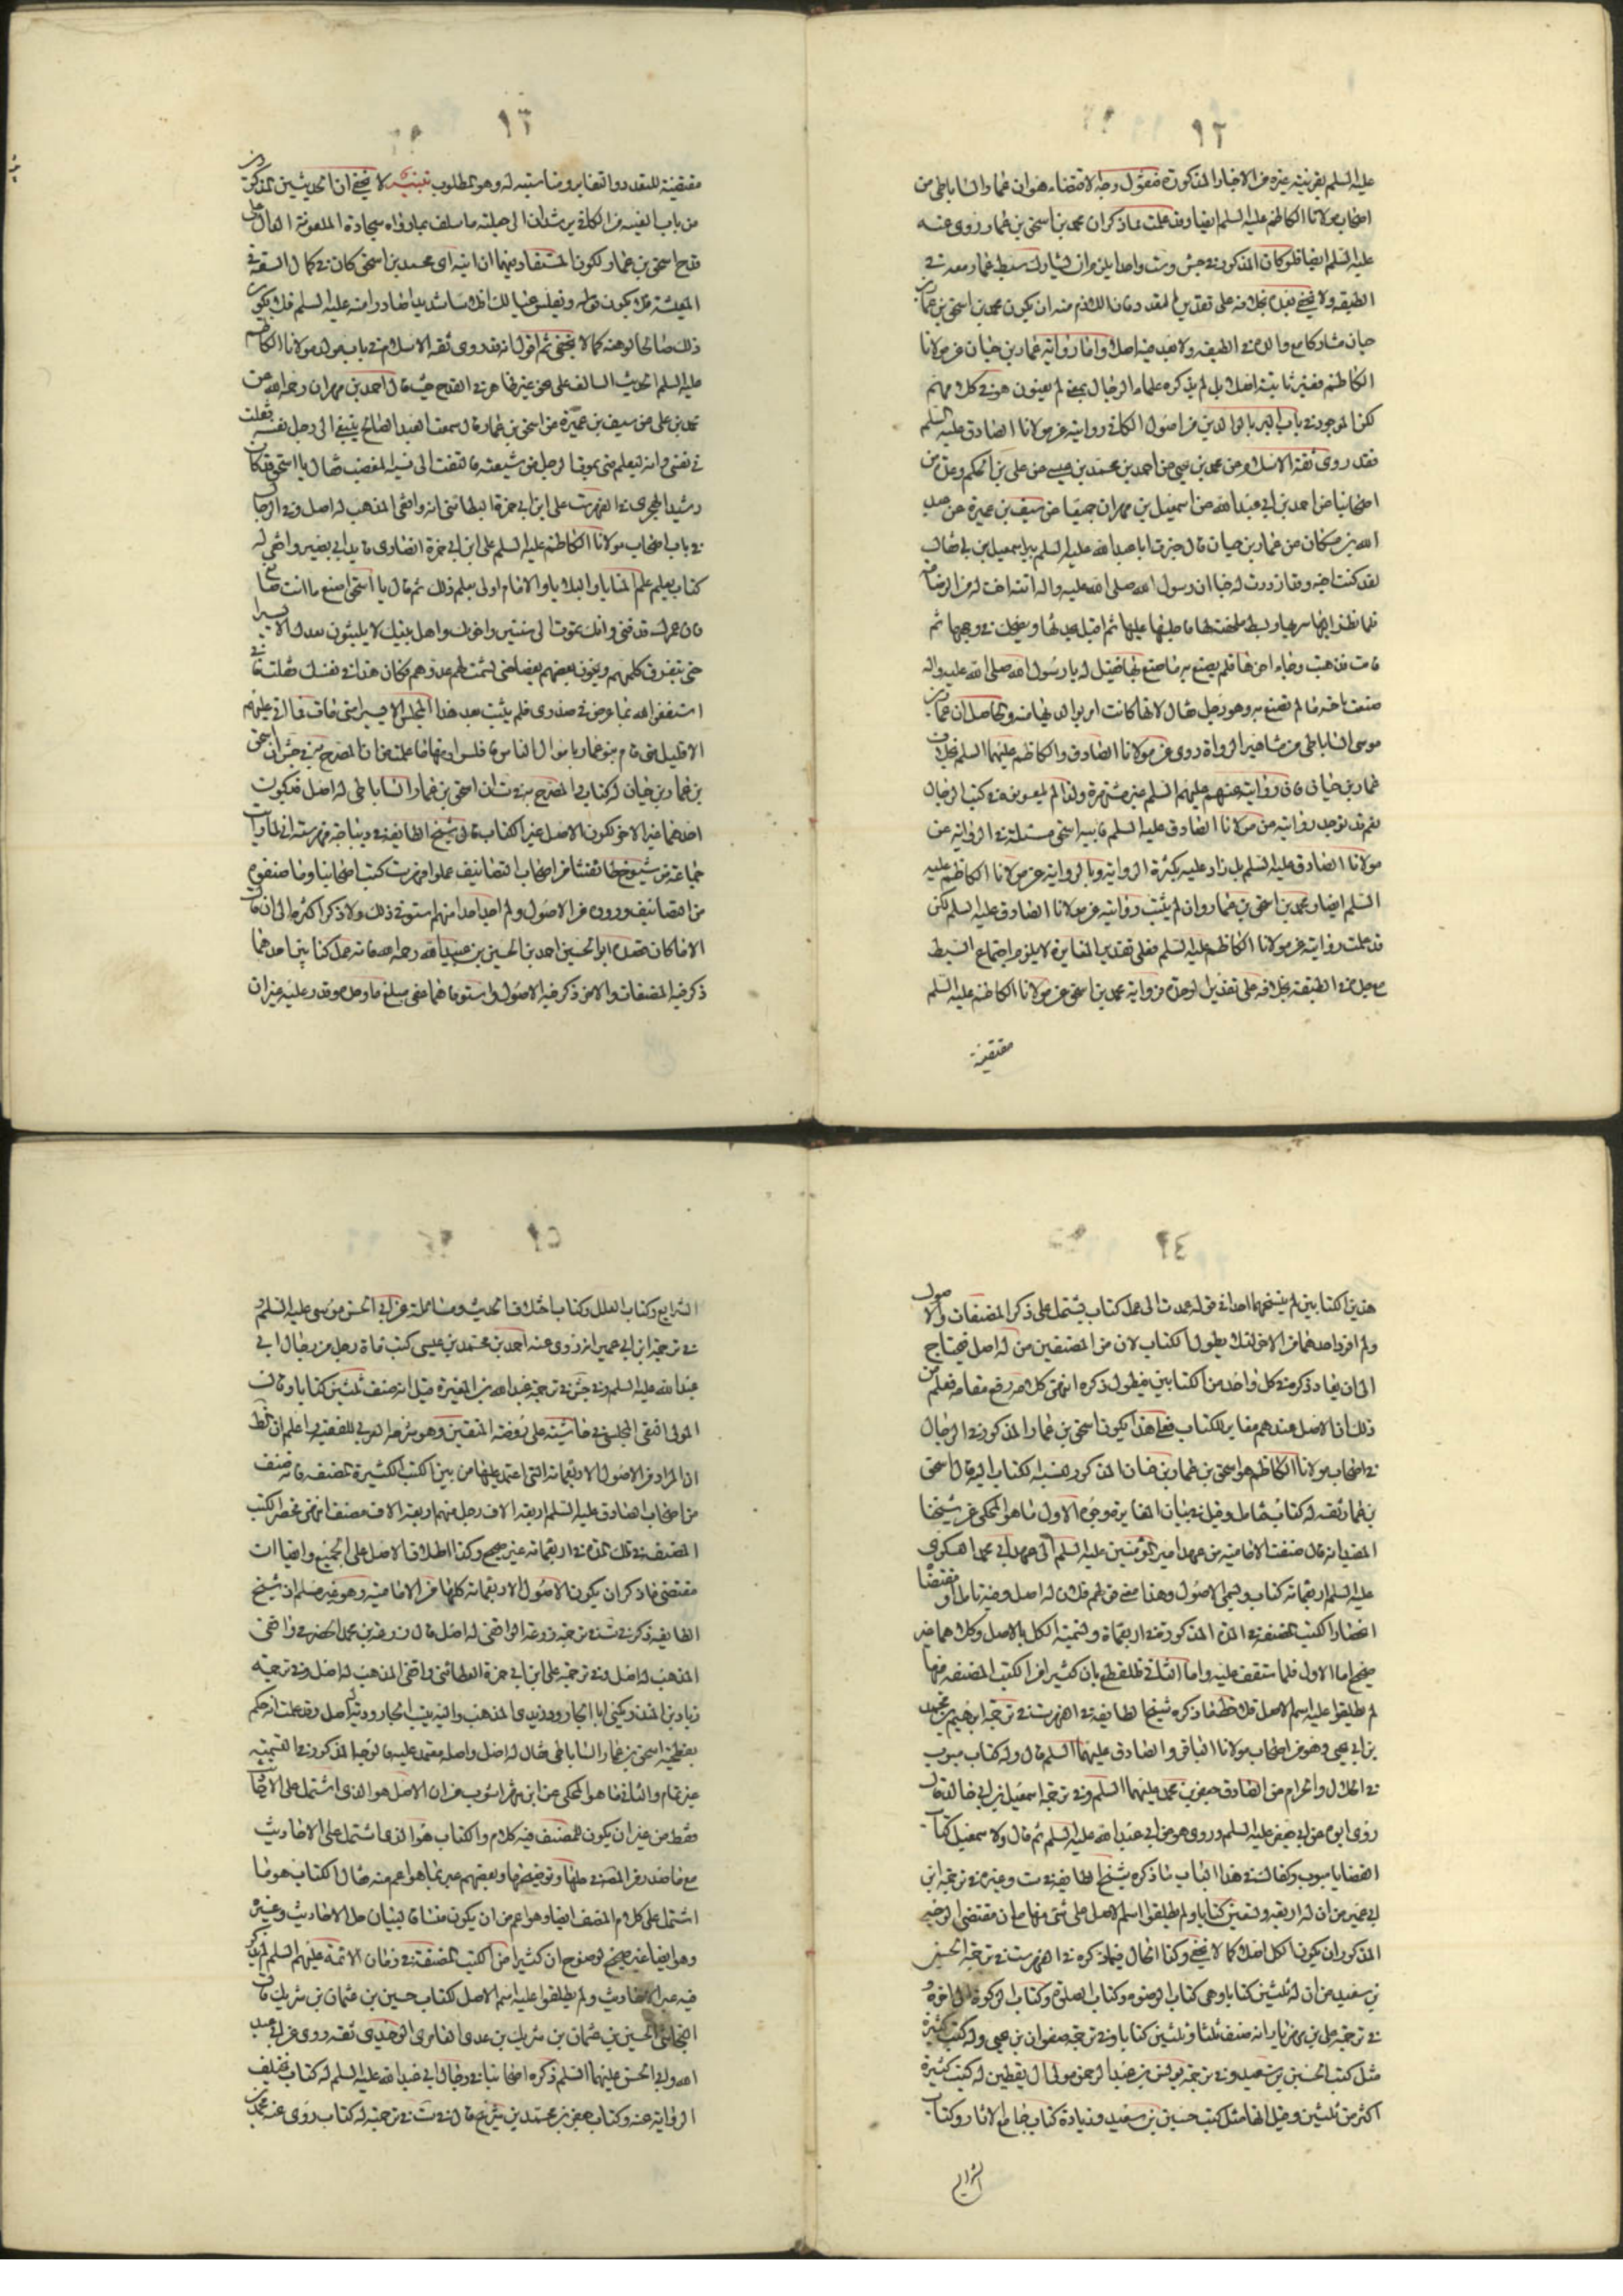 ٩٢
عليه السلم لقرينة غيره من الاخبار المذكورة فنقول وجه الاقتضاء هو ان عمار الساباطى من
اصحاب مولانا الكاظم عليه السلم ايضا وقد علمت مما ذكر ان محمد بن اسحق بن عمار روى عنه
عليه السلم ايضا فلو كان المذكور في جش وست واحدا يلزم ان يشارك سبط عمار معه في
الطبقة ولا يخفى بعده بخلافه على تقدير التعدد فان اللازم منه ان يكون محمد بن اسحق بن عمار بن
حيان مشاركا مع والده في الطبقة ولا بعد فيه اصلا واما رواية عمار بن حيان عن مولانا
الكاظم فغير ثابتة اصلا بل لم يذكره علماء الرجال بمعنى لم يعنون هو في كلامهم
لكن الموجود في باب البر بالوالدين من اصول الكافي روايته عن مولانا الصادق عليه السلم
فقد روى ثقة الاسلام عن محمد بن يحيى عن احمد بن محمد بن عيسى عن على بن الحكم وعدة من
اصحابنا عن احمد بن ابي عبد الله عن اسمعيل بن مهران جميعا عن سيف بن عميرة عن عبد
الله بن مسكان عن عمار بن حيان قال خبرت ابا عبد الله عليه السلم ببر اسمعيل ابني فقال
لقد كنت احبه وقد ازددت له حبا ان رسول الله صلى الله عليه واله اتته اخت له من الرضاعة
فلما نظر اليها سر بها وبسط ملحفته لها فاجلسها عليها ثم اقبل يحدثها ويضحك في وجهها ثم
قامت فذهبت وجاء اخوها فلم يصنع به ما صنع بها فقيل له يا رسول الله صلى الله عليه واله
صنعت باخته ما لم تصنع به وهو رجل فقال لانها كانت ابر بوالديها منه والحاصل ان عمار بن
موسى الساباطى من مشاهير الرواة روى عن مولانا الصادق والكاظم عليهما السلم بخلاف
عمار بن حيان فان روايته عنهم عليهم السلم غير مشتهرة ولذا لم يعنون في كتب الرجال
نعم قد توجد روايته عن مولانا الصادق عليه السلم فابنه اسحق مسئلة في الرواية عن
مولانا الصادق عليه السلم بل زاد عليه بكثرة الرواية وبالرواية عن مولانا الكاظم عليه
السلم ايضا ومحمد بن اسحق بن عمار وان لم يثبت روايته عن مولانا الصادق عليه السلم لكن
قد علمت روايته عن مولانا الكاظم عليه السلم فعلى تقدير المغايرة لا يلزم اجتماع السبط
مع جده في الطبقة بخلافه على تقدير الوحدة فرواية محمد بن اسحق عن مولانا الكاظم عليه السلم
مقتضية
٩٣
مقتضية للتعدد والتغاير ومناسبته له وهو المطلوب تنبيه لا يخفى ان الحديثين المذكورين
من باب الفيء من الكافي يرشدان الى جملة ما سلف مما رواه سجادة الملعونة الدال على
قدح اسحق بن عمار لكون المستفاد منهما ان ابنه اى محمد بن اسحق كان في كمال السعة في
المعيشة فلا يكون قوله وتفلس عيالك افلاسا شديدا صادرا منه عليه السلم فلا يكون
ذلك صالحا لوهنه كما لا يخفى ثم اقول انه قد روى ثقة الاسلام في باب مولد مولانا الكاظم
عليه السلم الحديث السالف على نحو غير ظاهر في القدح حيث قال احمد بن مهران رحمه الله عن
محمد بن على عن سيف بن عميرة عن اسحق بن عمار قال سمعت العبد الصالح ينعى الى رجل نفسه فقلت
في نفسى وانه ليعلم متى يموت الرجل من شيعته فالتفت الى شبه المغضب فقال يا اسحق قد كان
رشيد الهجرى في الفهرست على ابن ابي حمزة البطائنى انه واقفى المذهب له اصل وفي الرجال
في باب اصحاب مولانا الكاظم عليه السلم على ابن ابي حمزة انصارى قايد ابي بصير واقفى له
كتاب يعلم علم المنايا والبلايا والامام اولى بعلم ذلك ثم قال يا اسحق اصنع ما انت صانع
فان عمرك قد فنى وانك تموت الى سنتين واخوتك واهل بيتك لا يلبثون بعدك الا يسيرا
حتى يتفرق كلمتهم ويخون بعضهم بعضا حتى يشمت بهم عدوهم فكان هذا في نفسك فقلت فانى
استغفر الله مما عرض في صدرى فلم يلبث بعد هذا المجلس الا يسيرا حتى مات فما اتى عليهم
الا قليل حتى قام بنو عمار باموال الناس فافلسوا منها ما علمت فان المصرح به في جش ان اسحق
بن عمار بن حيان له كتاب والمصرح به في ست ان اسحق بن عمار الساباطى له اصل فيكون
احدهما غير الاخر لكون الاصل غير الكتاب قال شيخ الطايفة في ديباجة فهرسته انى لما رايت
جماعة من شيوخ طائفتنا من اصحاب التصانيف عملوا فهرست كتب اصحابنا وما صنفوه
من التصانيف ورووه من الاصول ولم اجد احدا منهم استوفى ذلك ولا ذكر اكثره الى ان قال
الا ما كان قصده ابو الحسين احمد بن الحسين بن عبيد الله رحمه الله فانه عمل كتابين احدهما
ذكر فيه المصنفات والاخر ذكر فيه الاصول واستوفاهما على مبلغ ما وجده وقدر عليه غير ان
٩٤
هذين الكتابين لم ينسخهما احد الى قوله عمدت الى عمل كتاب يشتمل على ذكر المصنفات والاصول
ولم افرد احدهما من الاخر لئلا يطول الكتاب لان من المصنفين من له اصل فيحتاج
الى ان يعاد ذكره في كل واحد من الكتابين فيطول ذكره انتهى كلامه رفع مقامه فعلم من
ذلك ان الاصل عندهم مغاير للكتاب فعلى هذا يكون اسحق بن عمار المذكور في الرجال
في اصحاب مولانا الكاظم هو اسحق بن عمار بن حيان المذكور لنسبة الكتاب اليه قال اسحق
بن عمار ثقة له كتاب تأمل وقيل في بيان المغايرة وجوه الاول ما هو المحكى عن شيخنا
المفيد انه قال صنفت الامامية من عهد امير المؤمنين عليه السلم الى عهد ابي محمد العسكرى
عليه السلم اربعمائة كتاب وتسمى الاصول وهذا معنى قولهم فلان له اصل وفيه تامل او مقتضا
انحصار الكتب المصنفة في المدة المذكورة في اربعمائة وتسمية الكل بالاصل وكلاهما غير
صحيح اما الاول فلما ستقف عليه واما الثانى فللقطع بان كثيرا من الكتب المصنفة فيها
لم يطلقوا عليه اسم الاصل فلاحظ ما ذكره شيخ الطايفة في الفهرست في ترجمة ابرهيم بن محمد
بن ابي يحيى وهو من اصحاب مولانا الباقر والصادق عليهما السلم قال وله كتاب مبوب
في الحلال والحرام عن الصادق جعفر بن محمد عليهما السلم وفي ترجمة اسمعيل بن ابي خالد قال
روى ابوه عن ابي جعفر عليه السلم وروى هو عن ابي عبد الله عليه السلم ثم قال ولاسمعيل كتاب
القضايا مبوب وكفاك في هذا الباب ما ذكره شيخ الطايفة في ست وغيره في ترجمة ابن
ابي عمير من ان له اربعة وتسعين كتابا ولم يطلقوا اسم الاصل على شئ منها مع ان مقتضى الوجه
المذكور ان يكون الكل اصلا كما لا يخفى وكذا الحال فيما ذكره في الفهرست في ترجمة الحسين
بن سعيد من ان له ثلثين كتابا وهى كتاب الوضوء وكتاب الصلوة وكتاب الزكوة الى اخره و
في ترجمة على بن مهزيار انه صنف ثلثا وثلثين كتابا وفي ترجمة صفوان بن يحيى وله كتب كثيرة
مثل كتب الحسين بن سعيد وفي ترجمة يونس بن عبد الرحمن مولى ال يقطين له كتب كثيرة
اكثر من ثلثين وقيل انها مثل كتب حسين بن سعيد وزيادة كتاب جامع الاثار وكتاب
الشرايع
٩٥
الشرايع وكتاب العلل وكتاب اختلاف الحديث ومسائله عن ابي الحسن موسى عليه السلم و
في ترجمة ابن ابي عمير انه روى عنه احمد بن محمد بن عيسى كتب مائة رجل من رجال ابي
عبد الله عليه السلم وفي جش في ترجمة عبد الله بن المغيرة قيل انه صنف ثلثين كتابا وقال
المولى التقى المجلسى في حاشيته على روضة المتقين وهو شرحه العربى للفقيه اعلم ان الظ
ان المراد من الاصول الاربعمائة التى اعتمد عليها من بين الكتب الكثيرة المصنفة فانه صنف
من اصحاب الصادق عليه السلم اربعة الاف رجل منهم اربعة الاف مصنف انتهى فحصر الكتب
المصنفة في تلك المدة في اربعمائة غير صحيح وكذا اطلاق الاصل على الجميع وايضا ان
مقتضى ما ذكر ان يكون الاصول الاربعمائة كلها من الامامية وهو غير مسلم ان شيخ
الطايفة ذكر في ست في ترجمة زرعة الواقفى له اصل قال زرعة بن محمد الحضرمى واقفى
المذهب له اصل وفي ترجمة على ابن ابي حمزة البطائنى واقفى المذهب له اصل وفي ترجمة
زياد بن المنذر يكنى ابا الجارود زيدى المذهب واليه ينسب الجارودية له اصل وقد علمت انه حكم
بفطحية اسحق بن عمار الساباطى فقال له اصل واصله معتمد عليه فالوجه المذكور في التسمية
غير تمام والثانى ما هو المحكى عن ابن شهراشوب من ان الاصل هو الذى اشتمل على الاخبار
فقط من غير ان يكون للمصنف فيه كلام والكتاب هو الذى اشتمل على الاحاديث
مع ما صدر من المصنف في حلها وتوضيحها وبعضهم عبر بما هو اعم منه فقال الكتاب هو ما
اشتمل على كلام المصنف ايضا وهو اعم من ان يكون مساقا لبيان حال الاحاديث وغيره
وهو ايضا غير صحيح لوضوح ان كثيرا من الكتب المصنفة في زمان الائمة عليهم السلم لم يذكر
فيه غير الاحاديث ولم يطلقوا عليه اسم الاصل ككتاب حسين بن عثمان بن شريك قال
النجاشى الحسين بن عثمان بن شريك بن عدى العامرى الوحيدى ثقة روى عن ابي عبد
الله وابي الحسن عليهما السلم ذكره اصحابنا في رجال ابي عبد الله عليه السلم له كتاب تختلف
الرواية عنه وكتاب جعفر بن محمد بن شريح قال في ست في ترجمته له كتاب روى عنه محمد بن